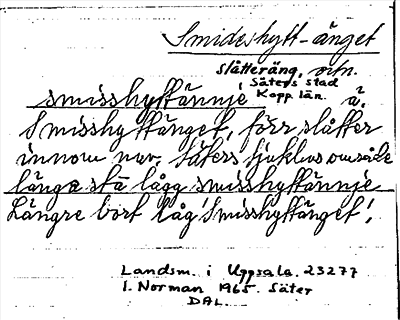 Smideshytt-änget
slåtteräng, ortn.
Säters stad
Kopp. län.
smisshyttännjè ä.
Smisshyttänget, förr slåtter
innom nuv. Säters sjukhus område
längə stä lågg smisshyttännje
Längre bort låg 'Smisshyttänget',
Landsm. i Uppsala. 23277
I. Norman 1965. Säter
DAL.